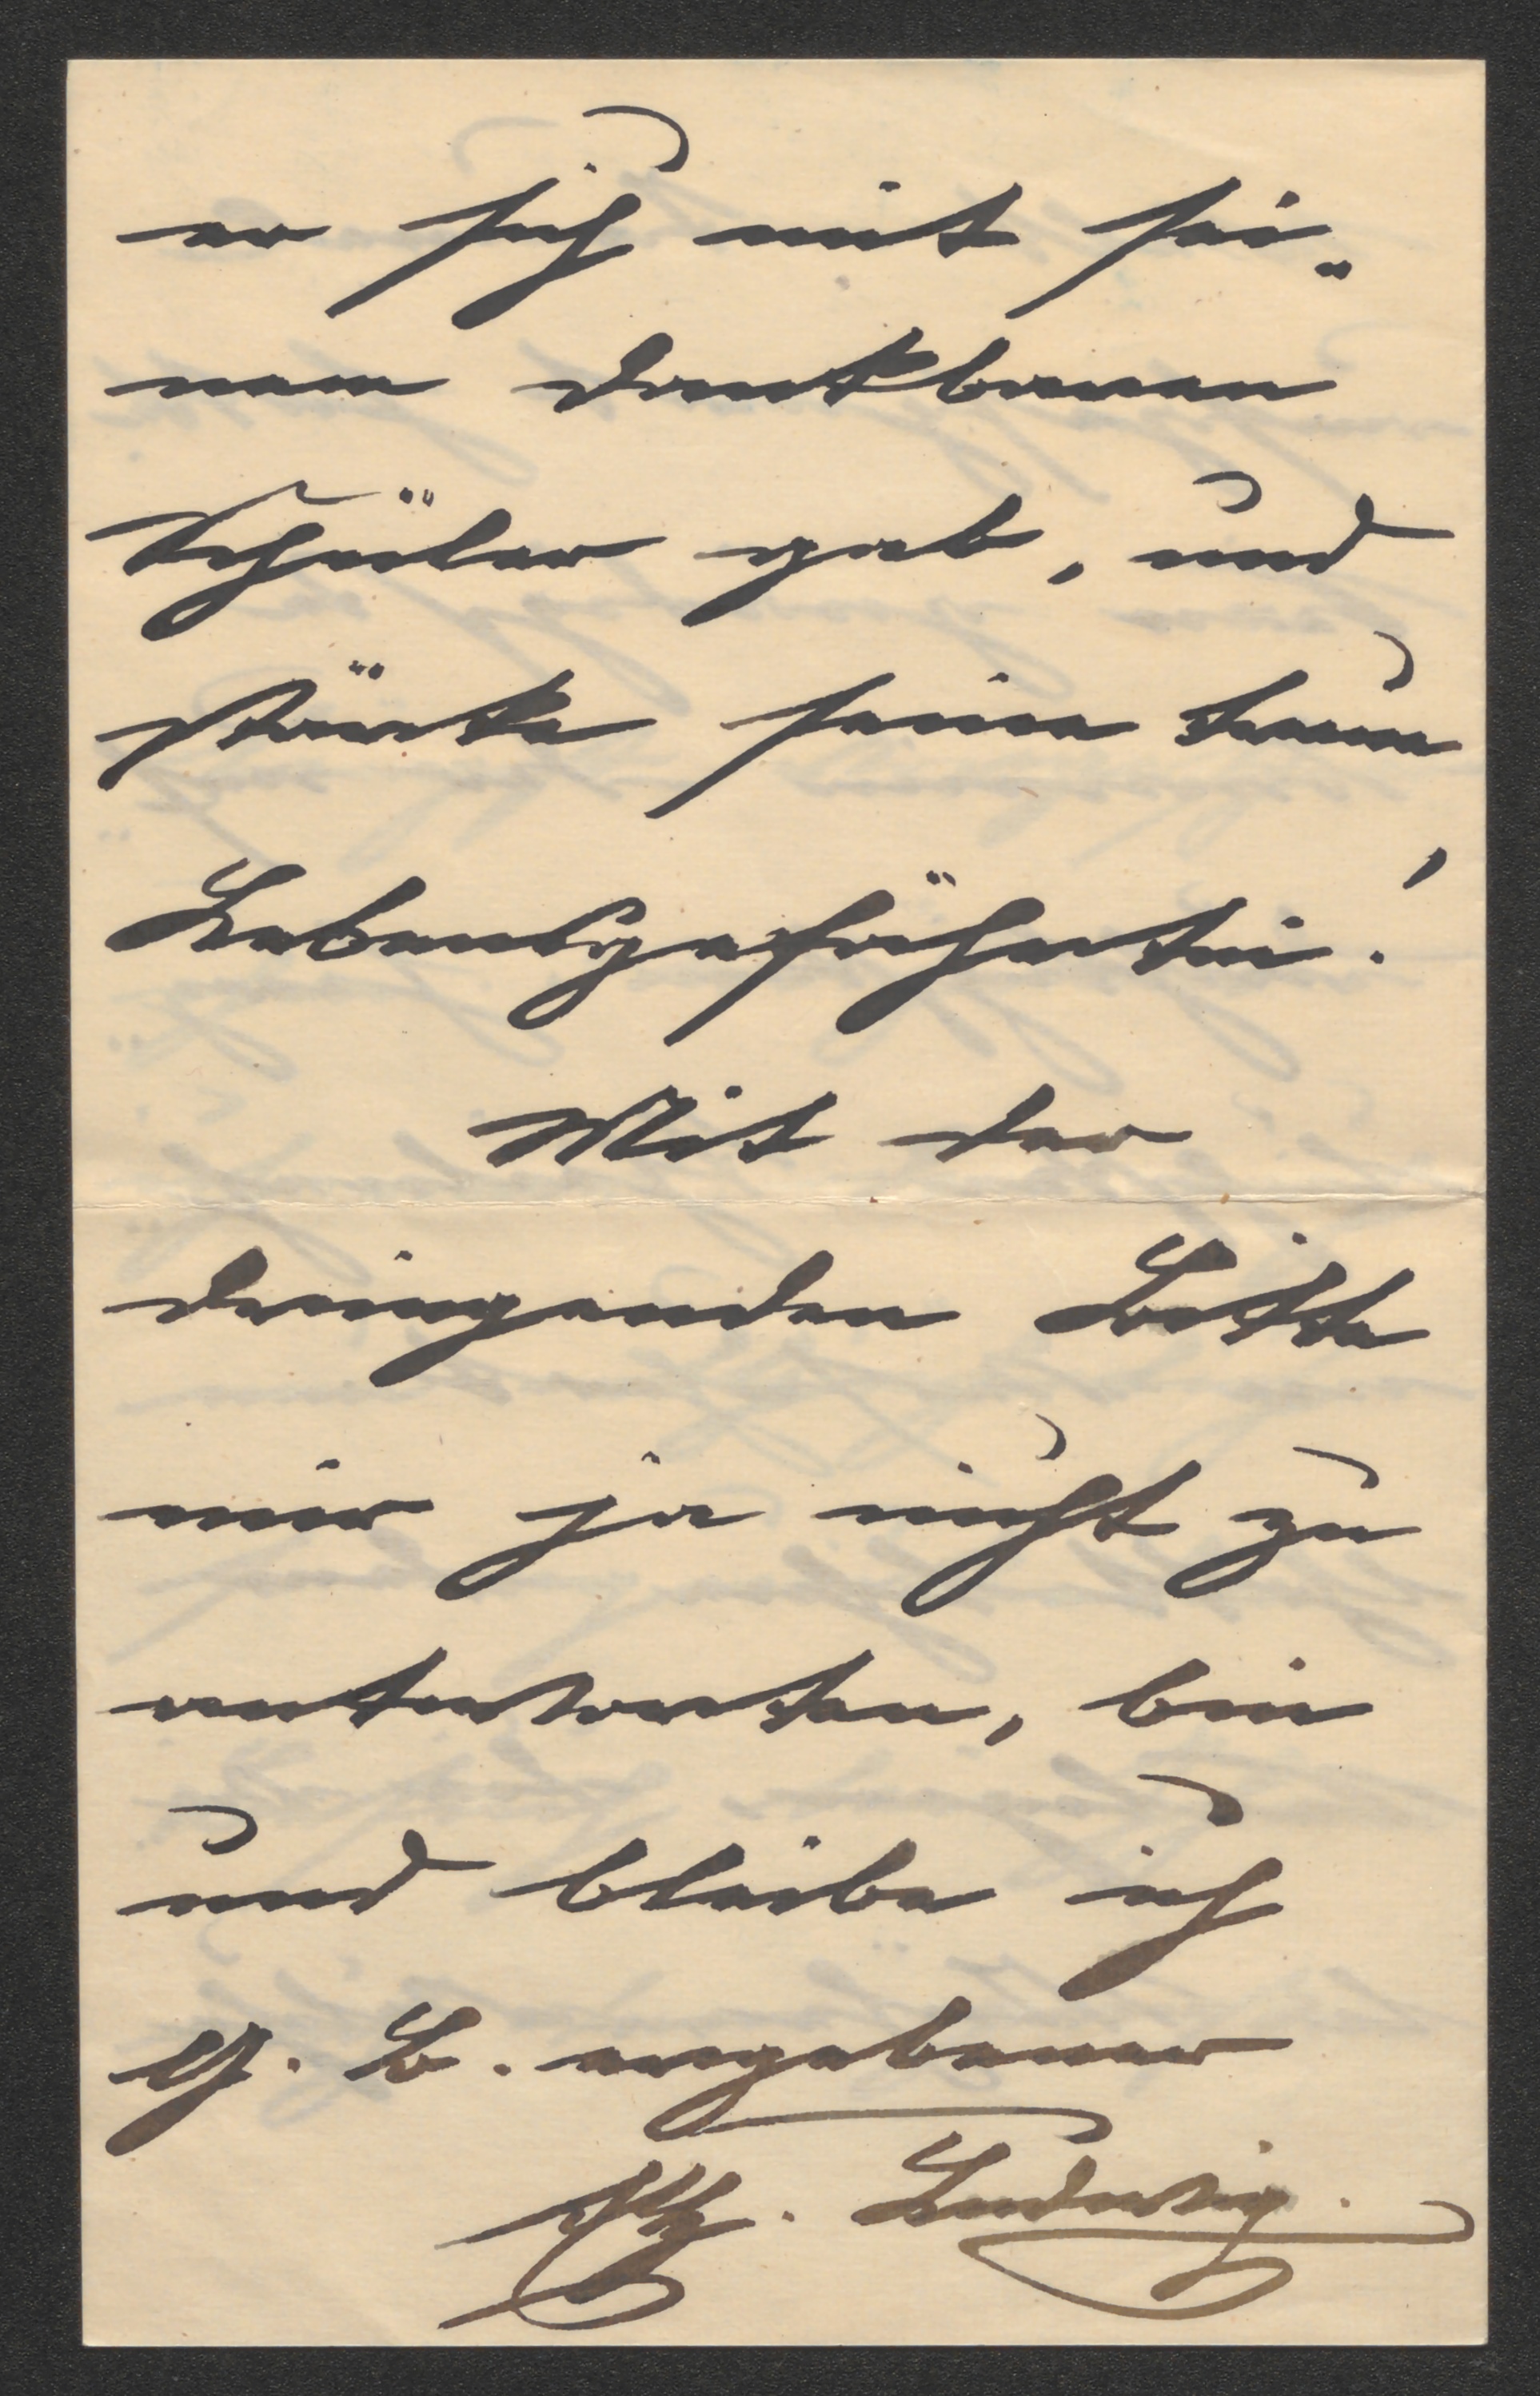 er sich mit sei-
nem dankbaren
Schüler gab, und
stärke seine treue
Lebensgefährtin!
Mit der
dringenden Bitte
mir ja nicht zu
antworten, bin
und bleibe ich
E. E. ergebener
Ludwig.